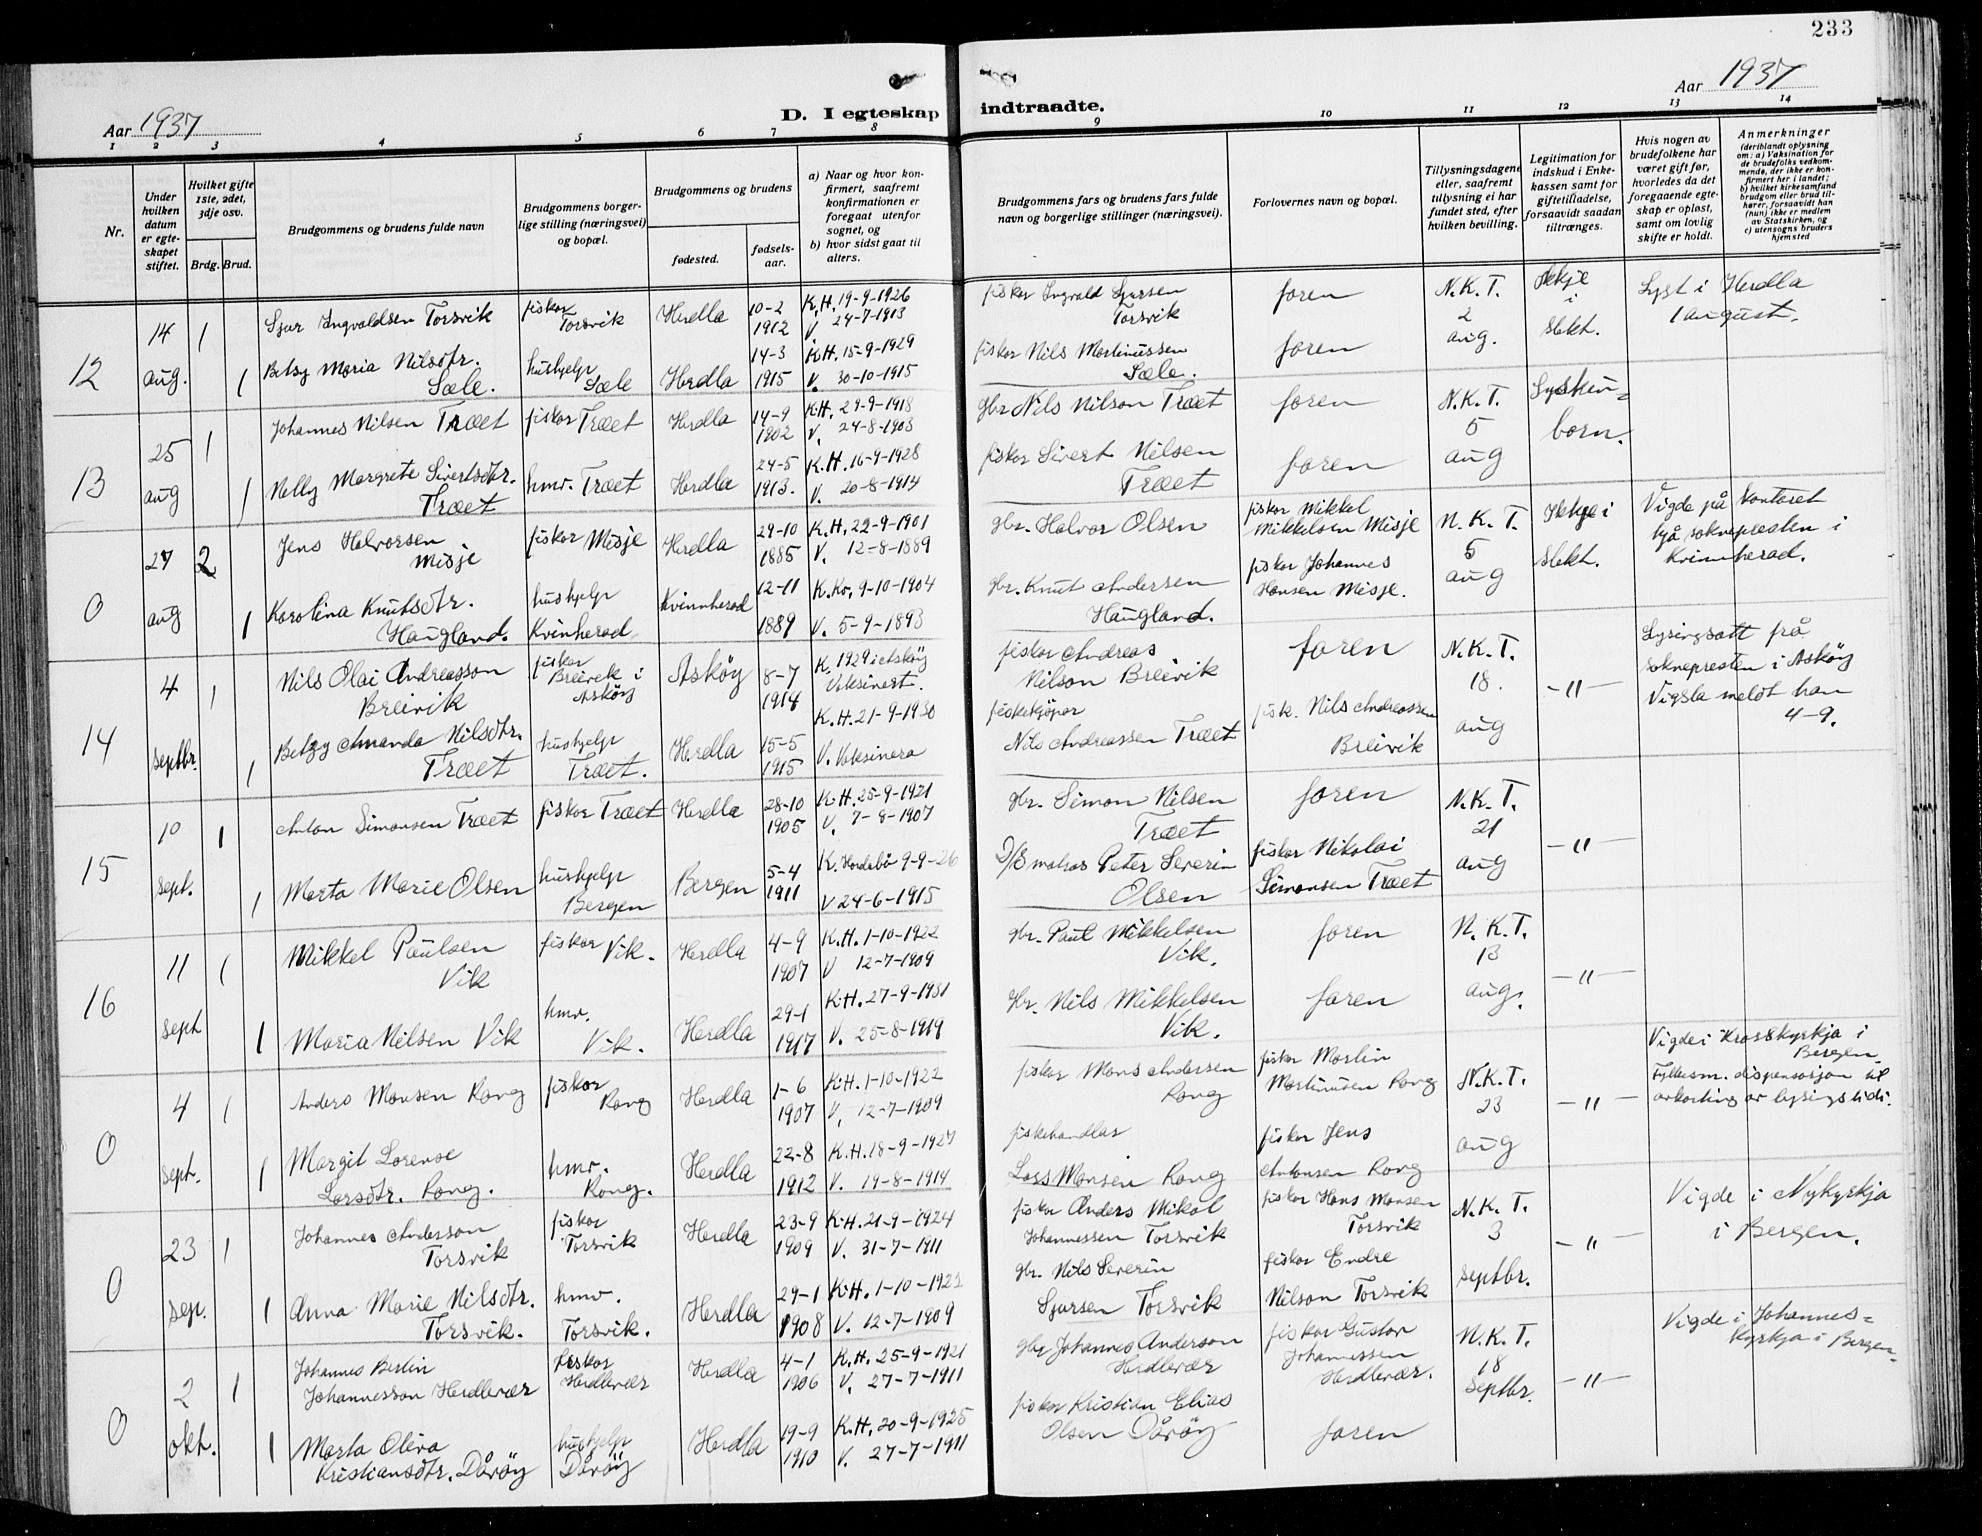 233
Aar 1937
D. I egteskap indtraadte.
Aar 1937
1 2 3 4 5 6 7 8 9 10 11 12 13 14
Nr.
Under hvilken datum er egteskapet stiftet.
Hvilket gifte 1ste, 2det, 3dje osv.
Brdg. Brud.
Brudgommens og brudens fulde navn
Brudgommens borgerlige stilling (næringsvei) og bopæl.
Brudgommens og brudens
fødested.
fødselsaar.
a) Naar og hvor konfirmert, saafremt konfirmationen er foregaat utenfor sognet, og
b) hvor sidst gaat til alters.
Brudgommens fars og brudens fars fulde navn og borgerlige stillinger (næringsvei).
Forlovernes navn og bopæl.
Tillysningsdagene eller, saafremt tillysning ei har fundet sted, efter hvilken bevilling.
Legitimation for indskud i Enkekassen samt for giftetilladelse, forsaavidt saadan tiltrænges.
Hvis nogen av brudefolkene har været gift før, hvorledes da det foregaaende egteskap er opløst, samt om lovlig skifte er holdt.
Anmerkninger
(deriblandt oplysning om: a) Vaksination for de brudefolks vedkommende, der ikke er konfirmert her i landet; b) hvilket kirkesamfund brudgom eller brud tilhører, forsaavidt han (hun) ikke er medlem av Statskirken, og c) utensogns bruders hjemsted
12 14 aug. 1 Sjur Ingvaldsen Torsvik fiskar Torsvik Herdla 10-2 1912 K.H. 19-9-1926 V. 24-7-1913 fiskar Ingvald Sjursen Torsvik faren N.K.T. 2 aug. Ikkje i slekt. Lyst i Herdla 1 august.
1 Betsy Maria Nilsdtr. Sæle. hushjelp Sæle Herdla 14-3 1915 K.H. 15-9-1929 V. 30-10-1915 fiskar Nils Martinussen Sæle. faren
13 25 aug 1 Johannes Nilsen Træet fiskar Træet Herdla 14-9 1902 K.H. 29-9-1918 V. 24-8-1903 Gbr Nils Nilson Træet faren N.K.T. 5 aug Syskenborn.
1 Nelly Margrete Sivertsdtr. Træet hmv. Træet Herdla 24-5 1913. K.H. 16-9-1928 V. 20-8-1914 fiskar Sivert Nilsen Træet faren
0 27 aug 2 Jens Halvorsen Misje fiskar Misje Herdla 29-10 1885 K.H. 22-9-1901 V. 12-8-1889 Gbr. Halvor Olsen fiskar Mikkel Mikkelsen Misje N.K.T. 5 aug Ikkje i slekt. Vigde på kontoret hjå soknepresten i Kvinnherad.
1 Karolina Knutsdtr. Haugland. hushjelp Kvinherad Kvinnherad 12-11 1889 K. Kv. 9-10-1904 V. 5-9-1893 Gbr. Knut Andersen Haugland. fiskar Johannes Hansen Misje.
14 4 septbr. 1 Nils Olai Andreasson Breivik fiskar Breivik i Askøy Askøy 8-7 1914 K. 1929 i Askøy Vaksinert. fiskar Andreas Nilson Breivik faren N.K.T. 18. aug -"- Lysingsatt frå soknepresten i Askøy Vigsla meldt han 4-9.
1 Betzy Amanda Nilsdtr. Træet hushjelp Træet. Herdla 15-5 1915 K.H. 21-9-1930 V. Vaksinera fiskekjøpar Nils Andreassen Træet fisk. Nils Andreassen Breivik
15 10 sept. 1 Anton Simonsen Træet fiskar Træet Herdla 28-10 1905 K.H. 25-9-1921 V. 7-8-1907 Gbr. Simon Nilsen Træet faren N.K.T. 21 aug -"-
1 Marta Marie Olsen hushjelp Bergen Bergen 5-4 1911 K. Hordabø 9-9-26 V 24-6-1915 D/S matros Peter Severin Olsen fiskar Nikolai Simonsen Træet
16 11 sept 1 Mikkel Paulsen Vik fiskar Vik. Herdla 4-9 1907 K.H. 1-10-1922 V 12-7-1909 Gbr. Paul Mikkelsen Vik. faren N.K.T. 13 aug. -"-
1 Maria Nilsen Vik hmv. Vik. Herdla 29-1 1917 K.H. 27-9-1931 V. 25-8-1919 Gbr. Nils Mikkelsen Vik. faren
0 4 sept. 1 Anders Monsen Rong fiskar Rong Herdla 1-6 1907 K.H. 1-10-1922 V. 12-7-1909 fiskar Mons Andersen Rong fiskar Martin Martinusen Rong N.K.T. 23 aug -"- Vigde i Krosskyrkja i Bergen. Fylkesm. dispensasjon til avkorting av lysingstidi.
1 Margit Lorense Larsdtr. Rong. hmv. Rong. Herdla 22-8 1912 K.H. 18-9-1927 V. 19-8-1914 fiskehandlar Lars Monsen Rong fiskar Jens Antonsen Rong
0 23 sep. 1 Johannes Anderson Torsvik fiskar Torsvik Herdla 23-9 1909 K.H. 21-9-1924 V. 31-7-1911 fiskar Anders Mikal Johannessen Torsvik fiskar Hans Monsen Torsvik N.K.T. 3 septbr. -"- Vigde i Nykyrkja i Bergen.
1 Anna Marie Nilsdtr. Torsvik. hmv. Torsvik. Herdla 29-1 1908 K.H. 1-10-1922 V. 12-7-1909 Gbr. Nils Severin Sjursen Torsvik fiskar Endre Nilson Torsvik
0 2 okt. 1 Johannes Berlin Johannesson Herdlevær fiskar Herdlevær Herdla 4-1 1906 K.H. 25-9-1921 V. 27-7-1911 Gbr Johannes Anderson Herdlevær fiskar Gustav Johannessen Herdlevær. N.K.T. 18 septbr. -"- Vigde i Johanneskyrkja i Bergen.
1 Marta Oliva Kristiansdtr. Dårøy hushjelp Dårøy Herdla 19-9 1910 K.H. 20-9-1925 V. 27-7-1911 fiskar Kristian Elias Olsen Dårøy faren